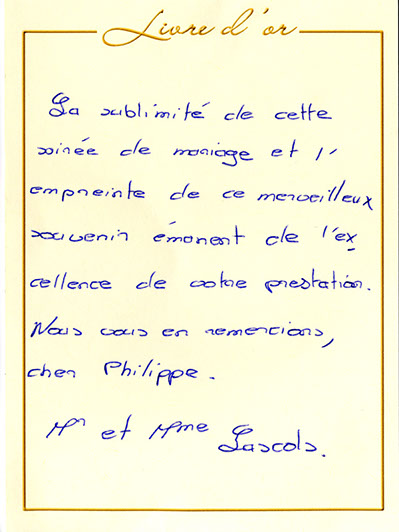 Livre d'or
La sublimité de cette
soirée de mariage et l'
empreinte de ce merveilleux
souvenir émanent de l'ex
cellence de votre prestation.
Nous vous en remercions,
cher Philippe.
Mr et Mme Lascols.